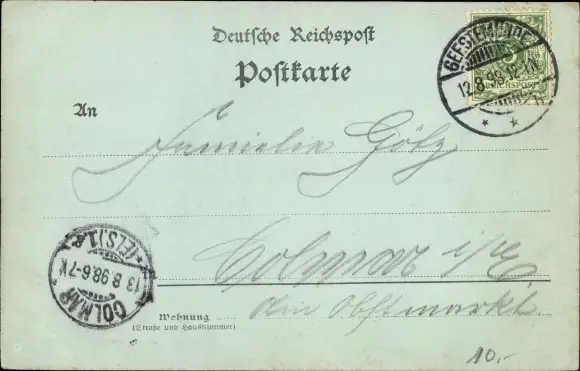 Deutsche Reichspost
Postkarte
GEESTEMÜNDE
12.8.98.12-1N
REICHSPOST
An
Familie Götz
Colmar i/E
COLMAR (ELS.) 1.
13.8.98.6-7N
am Obstmarkt.
Wohnung
(Straße und Hausnummer)
10.-